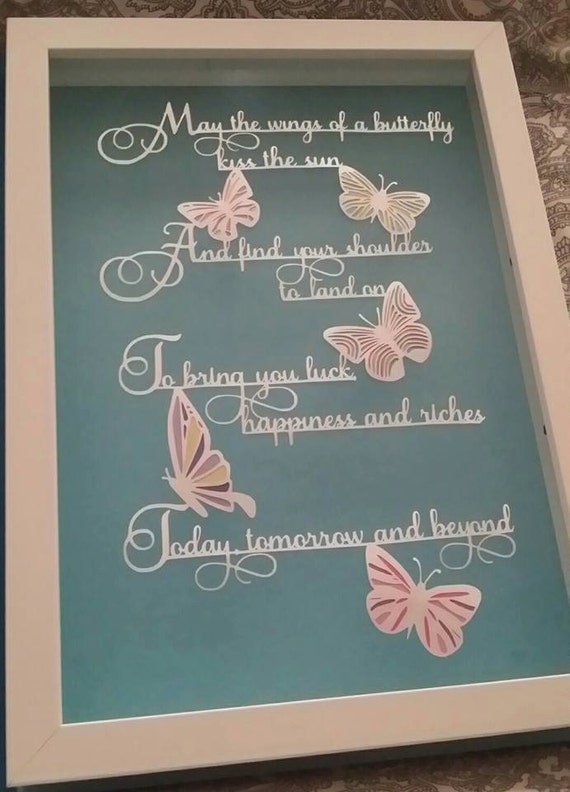 May the wings of a butterfly
kiss the sun
And find your shoulder
to land on
To bring you luck,
happiness and riches
Today, tomorrow and beyond